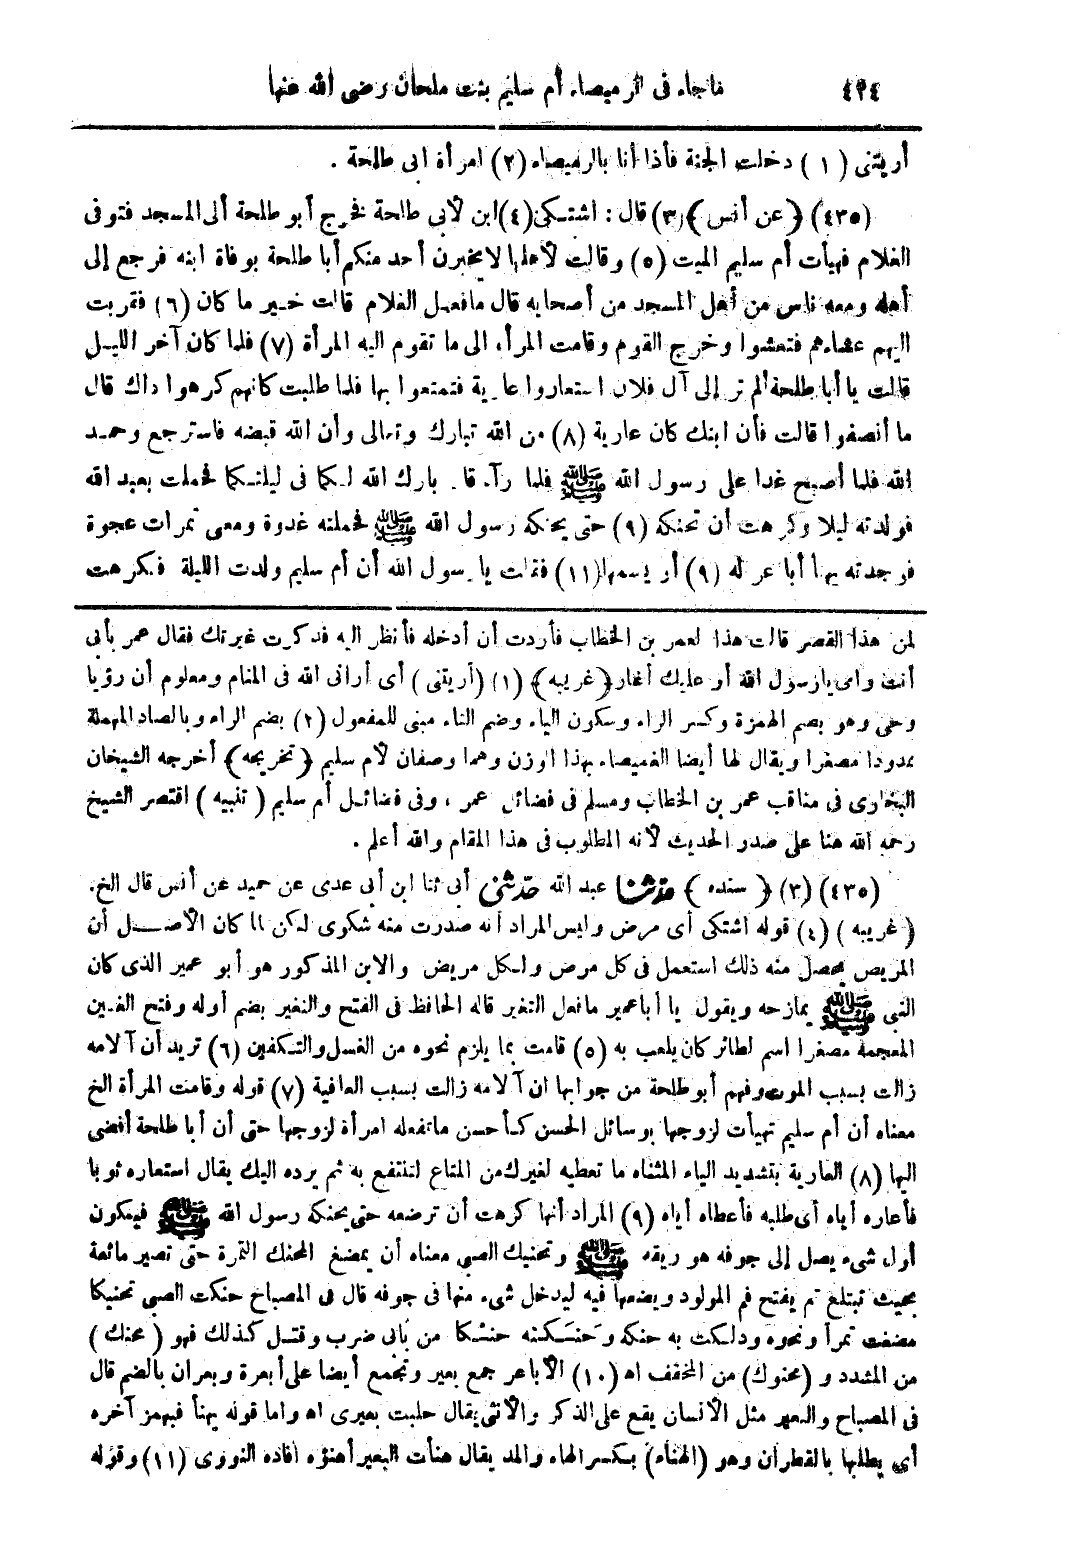 ٤٢٤ ماجاء فى الرميصاء أم سليم بنت ملحان رضى الله عنها
أريتنى (١) دخلت الجنة فأذا أنا بالرميصاء (٢) امرأة ابى طلحة .
(٤٣٥) ﴿عن أنس﴾ (٣) قال : اشتكى (٤) ابن لأبى طلحة فخرج أبو طلحة ألى المسجد فتوفى
الغلام فهيأت أم سليم الميت (٥) وقالت لأهلها لا يخبرن أحد منكم أبا طلحة بوفاة ابنه فرجع إلى
أهله ومعه ناس من أهل المسجد من أصحابه قال مافعل الغلام قالت خير ما كان (٦) فقربت
اليهم عشاءهم فتعشوا وخرج القوم وقامت المرأة الى ما تقوم اليه المرأة (٧) فلما كان آخر الليل
قالت يا أبا طلحة ألم تر إلى آل فلان استعاروا عارية فتمتعوا بها فلما طلبت كانهم كرهوا ذاك قال
ما أنصفوا قالت فأن ابنك كان عارية (٨) من الله تبارك وتعالى وأن الله قبضه فاسترجع وحمد
الله فلما أصبح غدا على رسول الله ﷺ فلما رآه قال بارك الله لكما فى ليلتكما فحملت بعبد الله
فولدته ليلا وكرهت أن تحنكه (٩) حتى يحنكه رسول الله ﷺ فحملته غدوة ومعى تمرات عجوة
فوجدته يهنأ أباعر له (٩) أو يسمها (١١) فقلت يا رسول الله أن أم سليم ولدت الليلة فكرهت
لمن هذا القصر قالت هذا لعمر بن الخطاب فأردت أن أدخله فأنظر اليه فذكرت غيرتك فقال عمر بأبى
أنت وامى يا رسول الله أو عليك أغار ﴿غريبه﴾ (١) (أريتنى) أى أرانى الله فى المنام ومعلوم أن رؤيا
وحى وهو بضم الهمزة وكسر الراء وسكون الياء وضم التاء مبنى للمفعول (٢) بضم الراء وبالصاد المهملة
ممدودا مصغرا ويقال لها أيضا الغميصاء بهذا الوزن وهما وصفان لأم سليم ﴿تخريجه﴾ أخرجه الشيخان
البخارى فى مناقب عمر بن الخطاب ومسلم فى فضائل عمر ، وفى فضائل أم سليم (تنبيه) اقتصر الشيخ
رحمه الله هنا على صدر الحديث لأنه المطلوب فى هذا المقام والله أعلم .
(٤٣٥) (٣) ﴿سنده﴾ حدثنا عبد الله حدثنى أبى ثنا ابن أبى عدى عن حميد عن أنس قال الخ.
﴿غريبه﴾ (٤) قوله اشتكى أى مرض وليس المراد أنه صدرت منه شكوى لكن لما كان الأصل أن
المريض يحصل منه ذلك استعمل فى كل مرض ولكل مريض والابن المذكور هو أبو عمير الذى كان
النبى ﷺ يمازحه ويقول يا أبا عمير ما فعل النغير قاله الحافظ فى الفتح والنغير بضم أوله وفتح الغين
المعجمة مصغرا اسم لطائر كان يلعب به (٥) قامت بما يلزم نحوه من الغسل والتكفين (٦) تريد أن آلامه
زالت بسبب الموت وفهم أبو طلحة من جوابها ان آلامه زالت بسبب العافية (٧) قوله وقامت المرأة الخ
معناه أن أم سليم تهيأت لزوجها بوسائل الحسن كأحسن ما تفعله امرأة لزوجها حتى أن أبا طلحة أفضى
اليها (٨) العارية بتشديد الياء المثناه ما تعطيه لغيرك من المتاع لينتفع به ثم يرده اليك يقال استعاره ثوبا
فأعاره أياه أى طلبه فأعطاه أياه (٩) المراد أنها كرهت أن ترضعه حتى يحنكه رسول الله ﷺ فيكون
أول شىء يصل إلى جوفه هو ريقه ﷺ وتحنيك الصبى معناه أن يمضغ المحنك التمرة حتى تصير مائعة
بحيث تبتلع ثم يفتح فم المولود ويضعها فيه ليدخل شىء منها فى جوفه قال فى المصباح حنكت الصبى تحنيكا
مضغت تمرأ ونحوه ودلكت به حنكه وحَنَكته حنكا من بابى ضرب وقتل كذلك فهو (محنك)
من المشدد و (محنوك) من المخفف اه (١٠) الأباعر جمع بعير وتجمع أيضا على أبعرة وبعران بالضم قال
فى المصباح والبعير مثل الأنسان يقع على الذكر والأنثى يقال حلبت بعيرى اه واما قوله يهنأ فبهمز آخره
أى يطلبها بالقطران وهو (الهناء) بكسر الهاء والمد يقال هنأت البعير أهنؤه افاده النووى (١١) وقوله